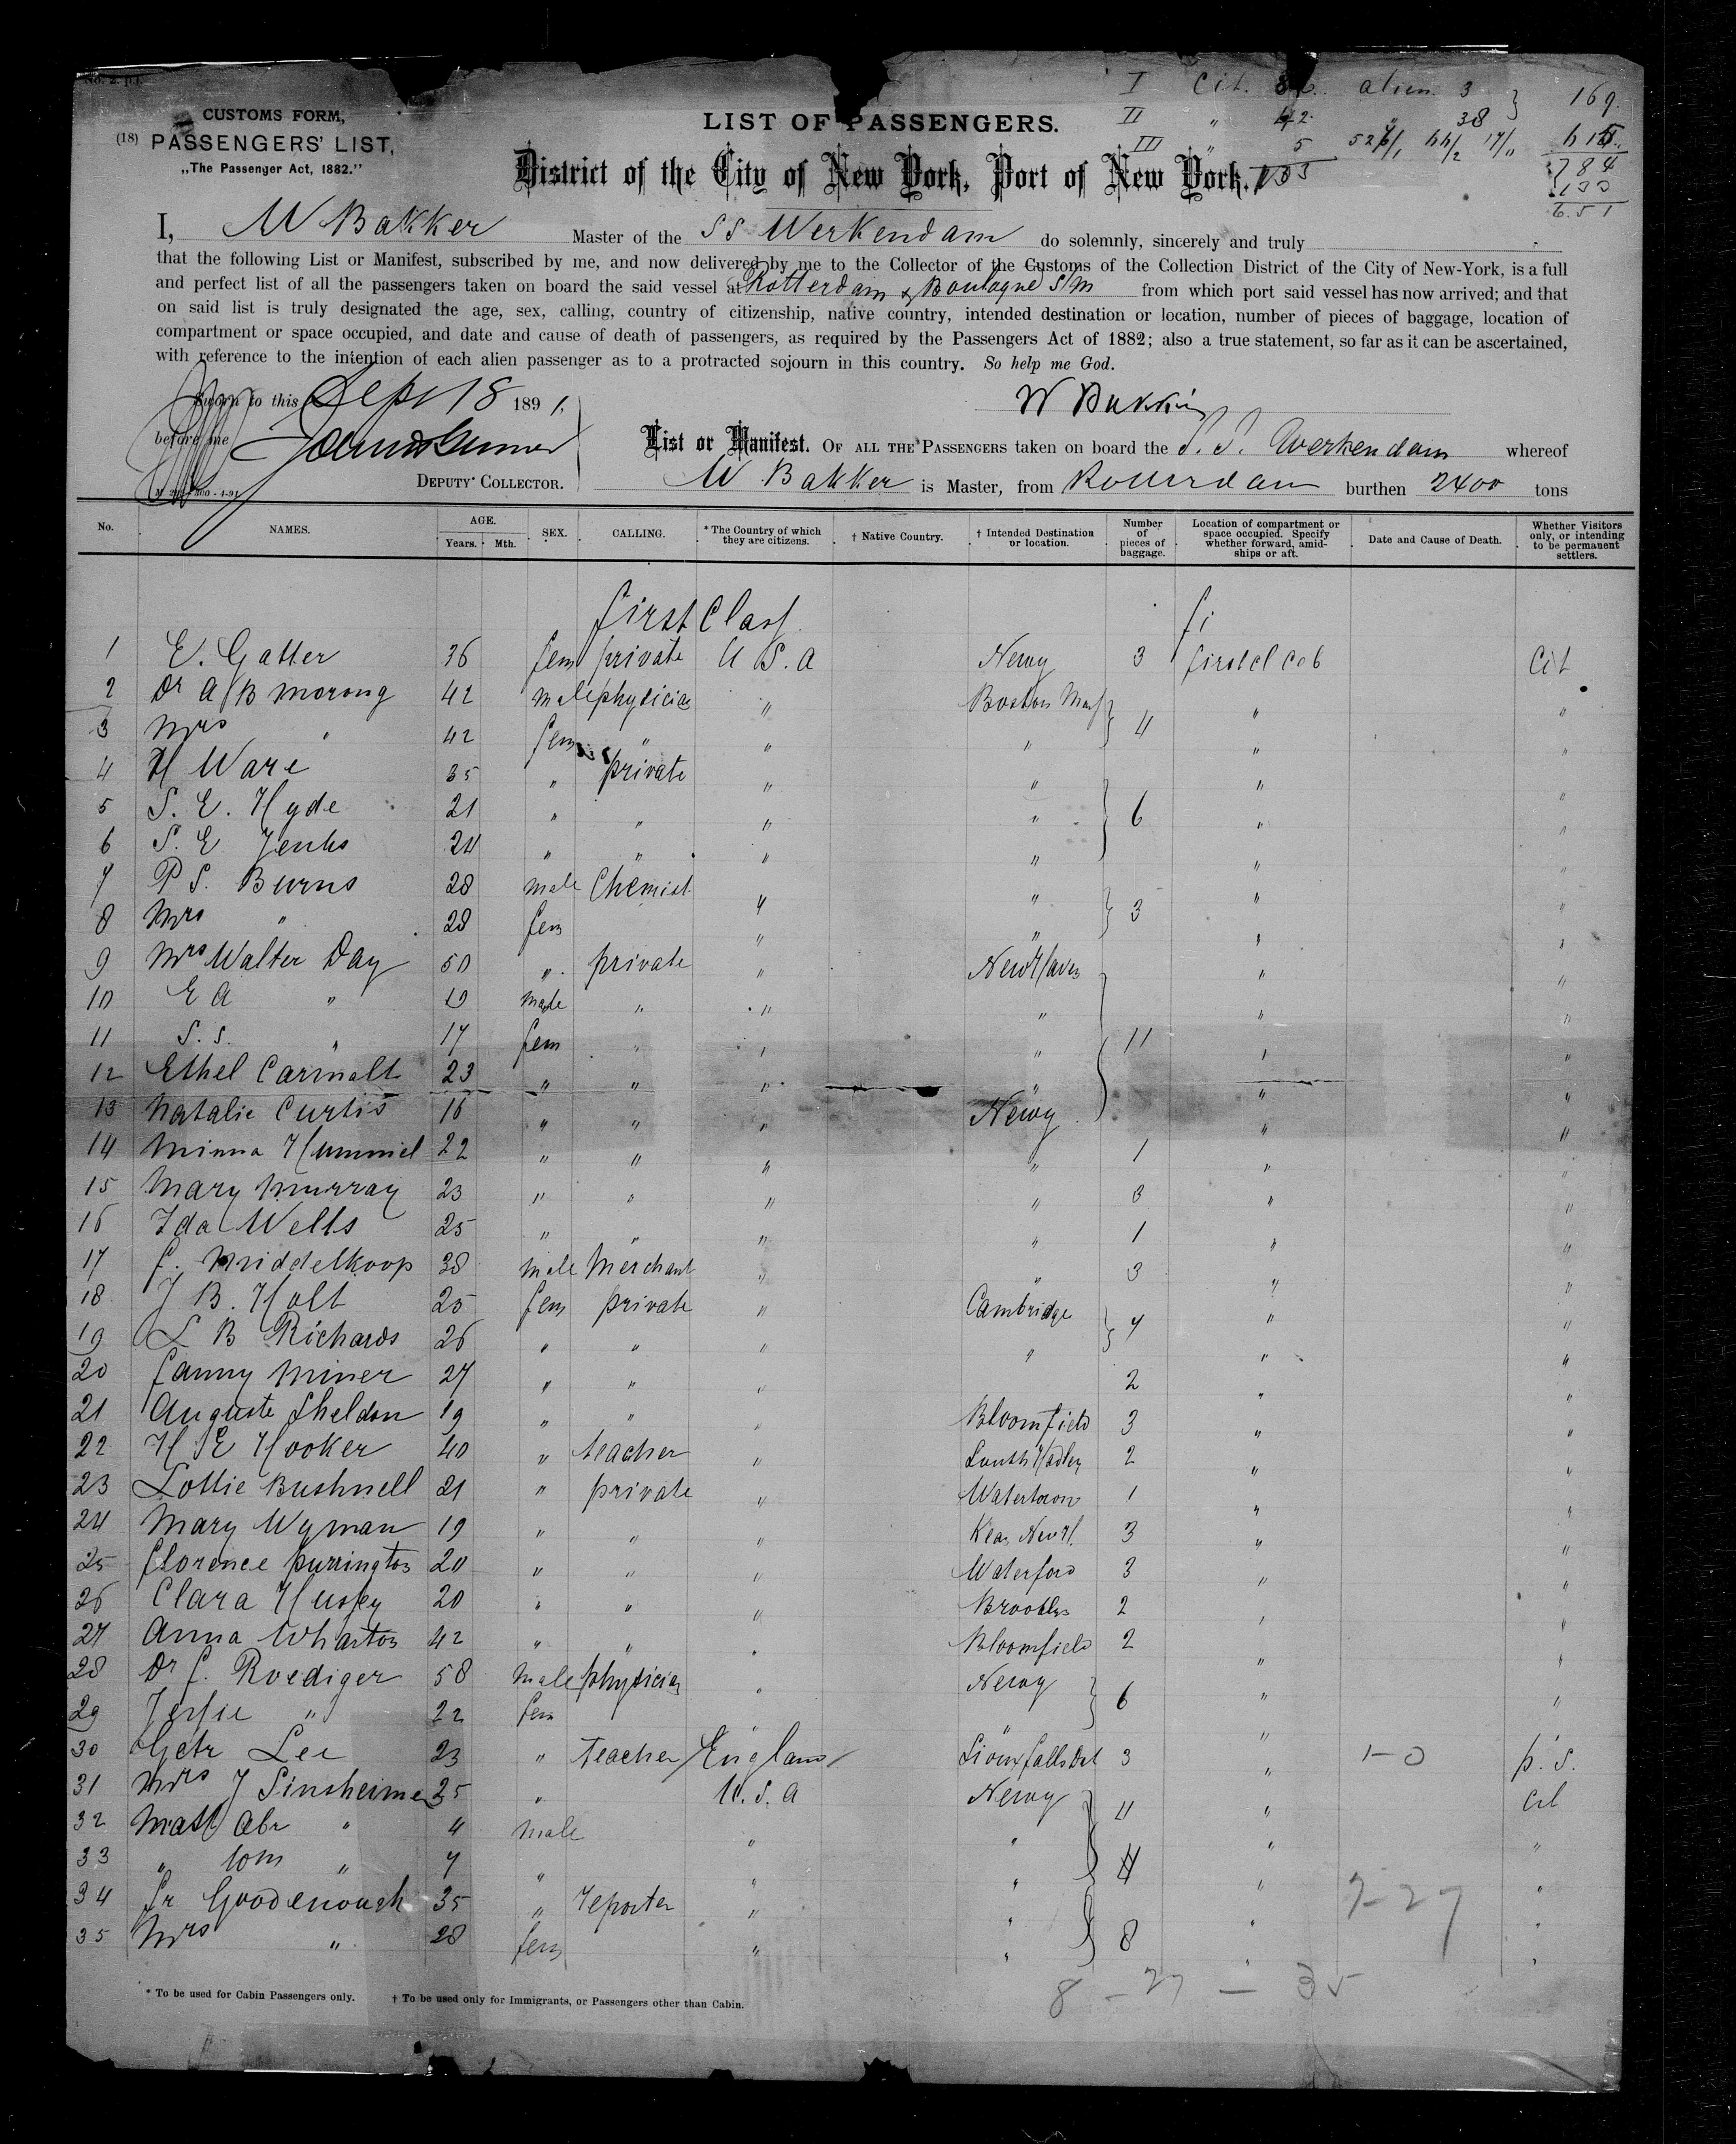 No. 2. p.l.
CUSTOMS FORM,
(18) PASSENGERS' LIST,
„The Passenger Act, 1882."
LIST OF PASSENGERS.
I Cit. alien 3 } 169.
II " 42 " 38
III " 5
784
651
District of the City of New York, Port of New York.
I, W Bakker Master of the SS Werkendam do solemnly, sincerely and truly
that the following List or Manifest, subscribed by me, and now delivered by me to the Collector of the Customs of the Collection District of the City of New-York, is a full
and perfect list of all the passengers taken on board the said vessel at Rotterdam & Boulogne S/M from which port said vessel has now arrived; and that
on said list is truly designated the age, sex, calling, country of citizenship, native country, intended destination or location, number of pieces of baggage, location of
compartment or space occupied, and date and cause of death of passengers, as required by the Passengers Act of 1882; also a true statement, so far as it can be ascertained,
with reference to the intention of each alien passenger as to a protracted sojourn in this country. So help me God.
Sworn to this Sept 18 1891.
W Bakker
before me
List or Manifest. OF ALL THE PASSENGERS taken on board the S.S. Werkendam whereof
DEPUTY COLLECTOR.
W Bakker is Master, from Rotterdam burthen 2400 tons
No. NAMES. AGE. Years. Mth. SEX. CALLING. * The Country of which they are citizens. † Native Country. † Intended Destination or location. Number of pieces of baggage. Location of compartment or space occupied. Specify whether forward, amidships or aft. Date and Cause of Death. Whether Visitors only, or intending to be permanent settlers.
first Class fi
1 E. Gatter 36 fem private U S. A New y 3 first cl cab Cit
2 Dr A B Morong 42 male physician " Boston Mass } 4 " "
3 Mrs " 42 fem " " " " "
4 H Ware 35 " private " " } 6 " "
5 S. E. Hyde 21 " " " " " "
6 S. E Jenks 24 " " " " " "
7 P S. Burns 28 male Chemist " " } 3 " "
8 Mrs " 28 fem " " " "
9 Mrs Walter Day 50 " private " New Haven } 11 " "
10 E A " 19 male " " " " "
11 S. S. " 17 fem " " " " "
12 Ethel Carmalt 23 " " " " " "
13 Natalie Curtis 16 " " " New y " "
14 Minna Hummel 22 " " " " 1 " "
15 Mary Murray 23 " " " " 3 " "
16 Ida Wells 25 " " " " 1 " "
17 f. Middelkoop 38 male Merchant " " 3 " "
18 J B. Holt 25 fem private " Cambridge } 7 " "
19 L B Richards 26 " " " " " "
20 fanny Miner 27 " " " 2 " "
21 Auguste Sheldon 19 " " " Bloomfield 3 " "
22 H E Hooker 40 " teacher " South Hadley 2 " "
23 Lottie Bushnell 21 " private " Watertown 1 " "
24 Mary Wyman 19 " " " 3 " "
25 florence purrington 20 " " " Waterford 3 " "
26 Clara Hussey 20 " " " Brooklyn 2 " "
27 Anna Wharton 42 " " " Bloomfield 2 " "
28 Dr f. Roediger 58 male physician " New y } 6 " "
29 Jessie " 22 fem " " " "
30 Lee 23 " teacher England Sioux falls Dak 3 " 1-0 p. S.
31 Mrs J Sinsheimer 35 " U. S. A New y } 4 " Cit
32 Mast Abr " 4 male " " " "
33 " Tom " 7 " " " " "
34 fr Goodenough 35 " reporter " " } 8 " 7-27 "
35 Mrs " 28 fem " " " "
8 - 27 - 35
* To be used for Cabin Passengers only. † To be used only for Immigrants, or Passengers other than Cabin.